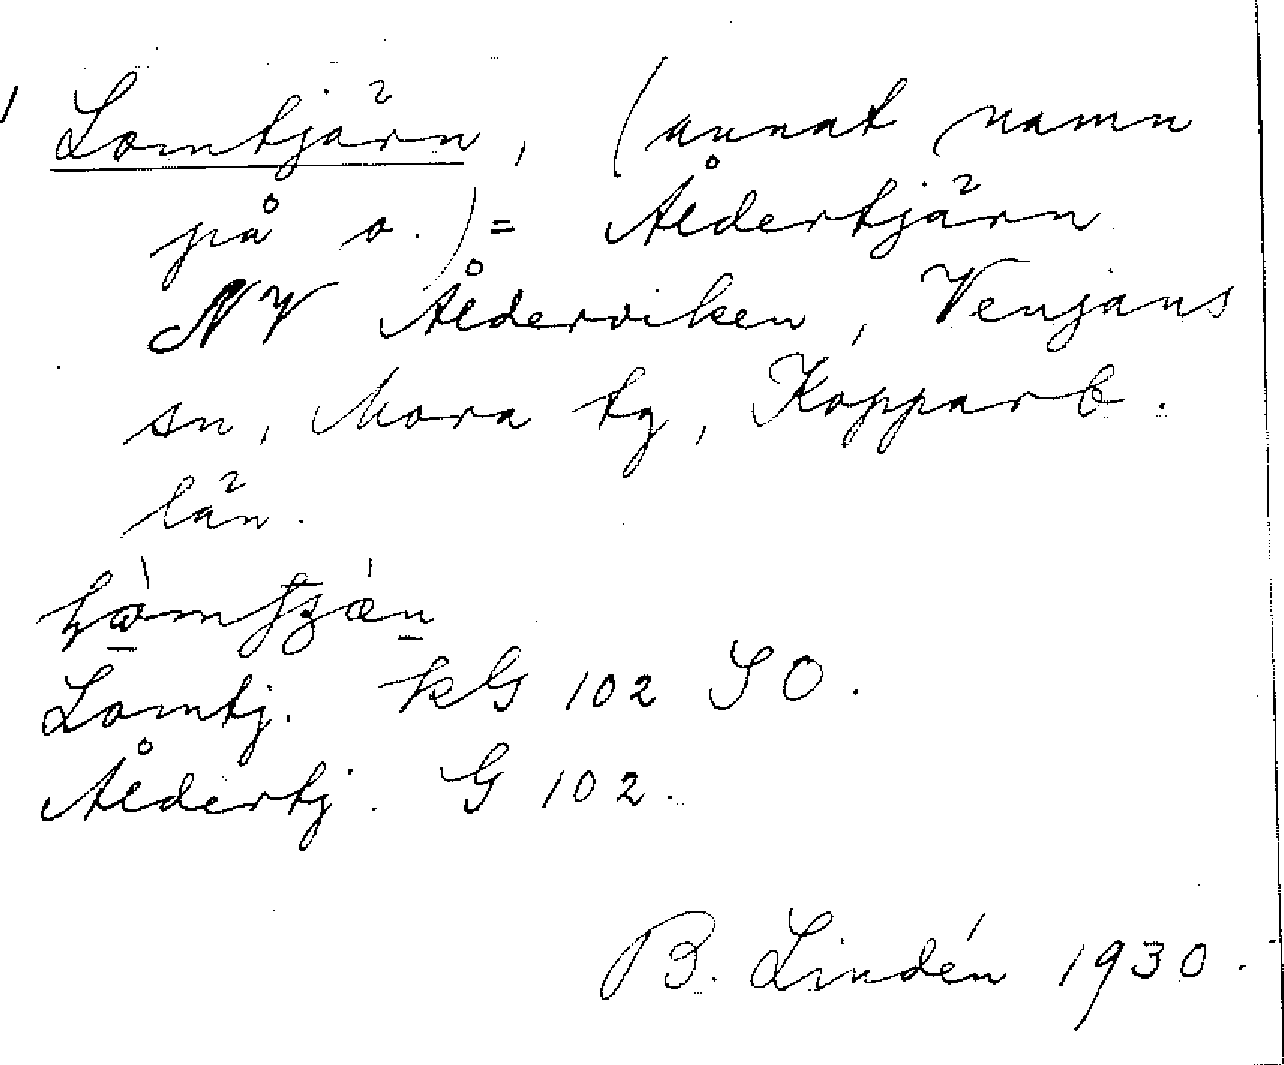 Lomtjärn, (annat namn
på o.) = Åldertjärn
NV Ålderviken, Venjans
sn, Mora tg, Kopparb.
län.
Lomtj. kG 102 SO.
Åldertj. G 102.
B. Lindén 1930.